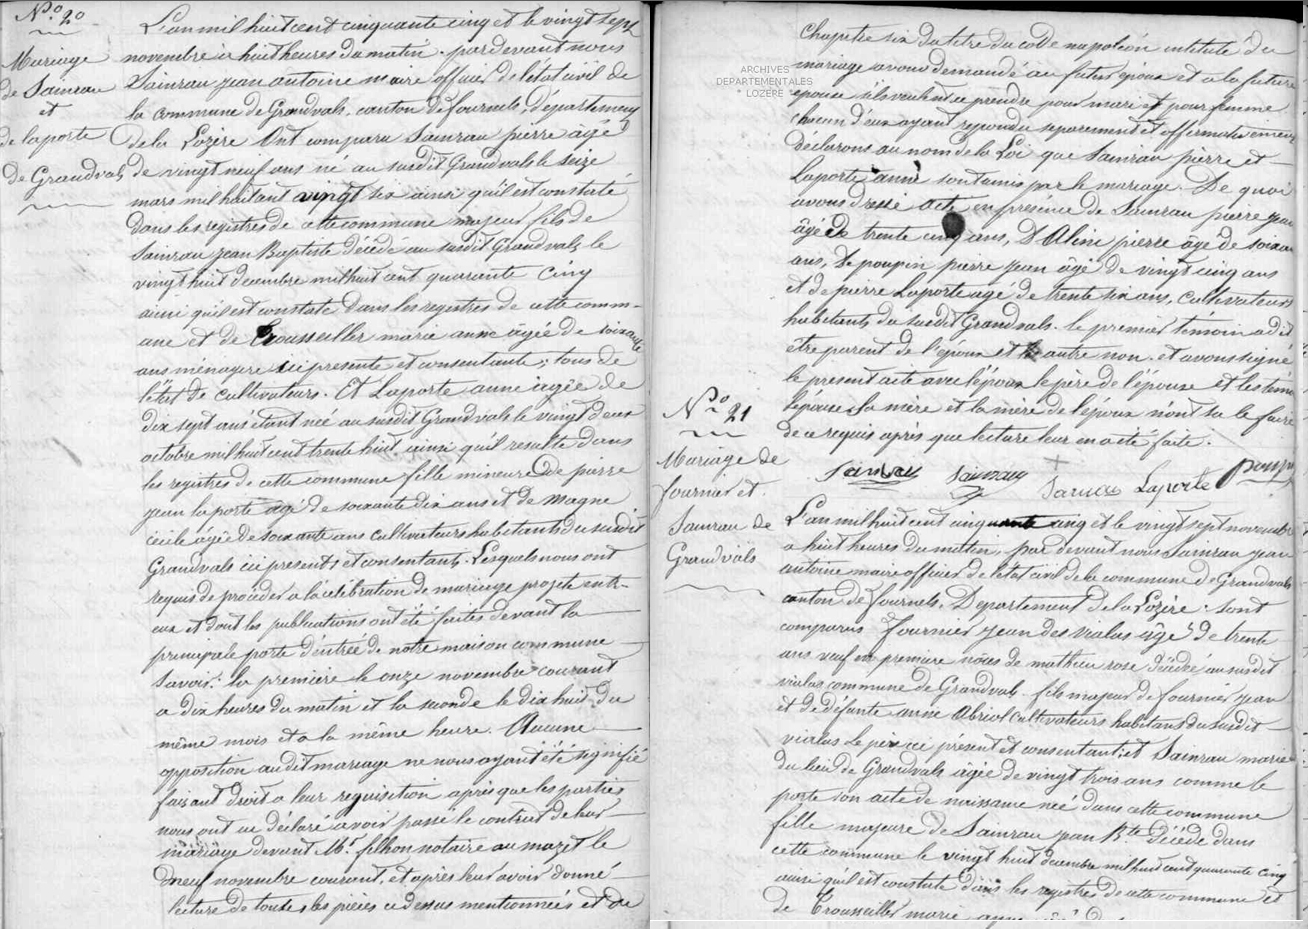 N.o 20
Mariage
de Sainrau
et
de laporte
de Grandvals
L'an mil huit cent cinquante cinq et le vingt sept
novembre à huit heures du matin. par devant nous
Sainrau jean antoine maire officier de l'etat civil de
la commune de Grandvals, canton de fournels, département
de la Lozère Ont comparu Sainrau pierre âgé
de vingt neuf ans né au susdit Grandvals le seize
mars mil huit cent vingt six ainsi qu'il est constaté
dans les registres de cette commune majeur fils de
Sainrau jean Baptiste décédé au susdit Grandvals le
vingt huit decembre mil huit cent quarante cinq
ainsi qu'il est constaté dans les registres de cette comm-
une et de Crouseiller marie anne âgée de soixante
ans ménagère ici presente et consentante; tous de
l'état de cultivateurs. Et Laporte anne agée de
dix sept ans étant née au susdit Grandvals le vingt deux
octobre mil huit cent trente huit. ainsi qu'il resulte dans
les registres de cette commune fille mineure de pierre
jean laporte agé de soixante dix ans et de Magne
cécile âgée de soixante ans cultivateurs habitants du susdit
Grandvals ici presents et consentants. Lesquels nous ont
requis de procéder a la célébration de mariage projeté entr-
eux et dont les publications ont été faites devant la
principale porte d'entrée de notre maison commune
Savoir: la première le onze novembre courant
a dix heures du matin et la seconde le dix huit du
même mois et a la même heure. Aucune
opposition au dit mariage ne nous ayant été signifié
faisant droit a leur requisition après que les parties
nous ont declaré avoir passé le contrat de leur
mariage devant M.r filhon notaire au le
neuf novembre courant, et après leur avoir donné
lecture de toutes les pièces ci dessus mentionnées et du
ARCHIVES
DEPARTEMENTALES
* LOZERE *
Chapitre six du titre du code napoléon intitulé du
mariage avons demandé au futur époux et a la future
epouse s'ils veulent se prendre pour mari et pour femme
chacun d'eux ayant repondu separement et affirmativement
déclarons au nom de la Loi que Sainrau pierre et
Laporte anne sont unis par le mariage. De quoi
avons dressé acte en présence de Sainrau pierre jean
âgé de trente cinq ans, D'Alini pierre âgé de soixante
ans, De poupin pierre jean âgé de vingt cinq ans
et de pierre Laporte agé de trente six ans, cultivateurs
habitants du susdit Grandvals. le premier témoin a dit
être parent de l'époux et autre non. et avons signé
le present acte avec l'époux le père de l'épouse et les témoins
l'épouse la mère et la mère de l'époux n'ont su le faire
de ce requis après que lecture leur en a été faite.
Sainrau Sainrau Sainrau Laporte poupin
N.o 21
Mariage de
fournier et
Sainrau de
Grandvals
L'an mil huit cent cinquante cinq et le vingt sept novembre
a huit heures du matin, par devant nous Sainrau jean
antoine maire officier de l'état civil de la commune de Grandvals
canton de fournels, Departement de la Lozère. Sont
comparus fournier jean des vialas âgé de trente
ans veuf en premiere nôces de mathieu rose décédé au susdit
vialas commune de Grandvals. fils majeur de fournier jean
et de défunte anne Abrial cultivateurs habitans du susdit
vialas le père ici présent et consentant: et Sainrau marie
du lieu de Grandvals âgée de vingt trois ans comme le
porte son acte de naissance née dans cette commune
fille majeure de Sainrau jean B.te décédé dans
cette commune le vingt huit decembre mil huit cent quarante cinq
ainsi qu'il est constaté dans les registres de cette commune et
de Crouseiller marie anne